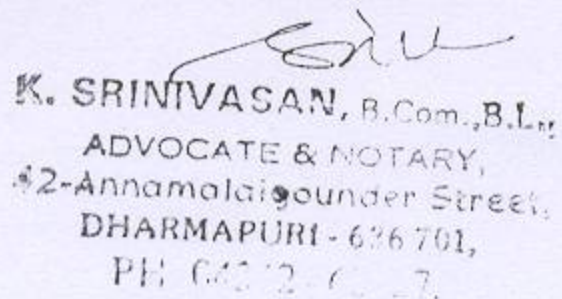 K. SRINIVASAN, B.Com.,B.L.,
ADVOCATE & NOTARY,
42-Annamalaigounder Street,
DHARMAPURI - 636 701,
PH